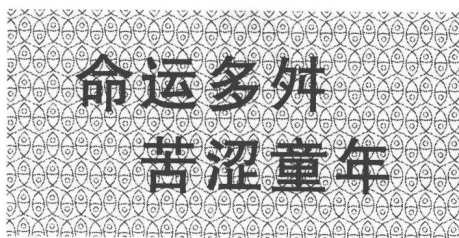 命运多舛
苦涩童年